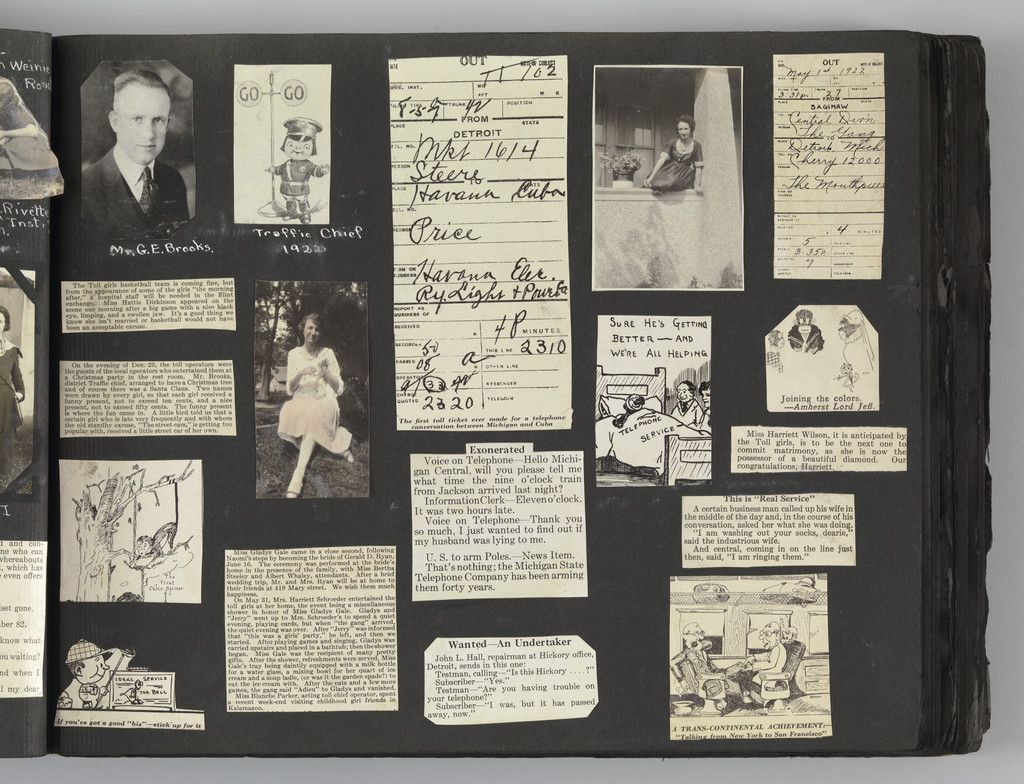 Weinie
Roast
Rivette
Inst.
Mr. G.E. Brooks.
GO GO
Traffic Chief
1922
The Toll girls basketball team is coming fine, but
from the appearance of some of the girls "the morning
after," a hospital staff will be needed in the Flint
exchange. Miss Hattie Dickinson appeared on the
scene one morning after a big game with a nice black
eye, limping, and a swollen jaw. It's a good thing we
know she isn't married or basketball would not have
been an acceptable excuse.
On the evening of Dec. 23, the toll operators were
the guests of the local operators who entertained them at
a Christmas party in the rest room. Mr. Brooks,
district Traffic chief, arranged to have a Christmas tree
and of course there was a Santa Claus. Two names
were drawn by every girl, so that each girl received a
funny present, not to exceed ten cents, and a nice
present, not to exceed fifty cents. The funny present
is where the fun came in. A little bird told us that a
certain girl who is late very frequently and with whom
the old standby excuse, "The street cars," is getting too
popular with, received a little street car of her own.
The
First
Cable Splicer
IDEAL SERVICE
THE BELL
If you've got a good "biz"—stick up for it
Miss Gladys Gale came in a close second, following
Naomi's steps by becoming the bride of Gerald D. Ryan,
June 16. The ceremony was performed at the bride's
home in the presence of the family, with Miss Bertha
Steeley and Albert Whaley, attendants. After a brief
wedding trip, Mr. and Mrs. Ryan will be at home to
their friends at 419 Mary street. We wish them much
happiness.
On May 31, Mrs. Harriett Schroeder entertained the
toll girls at her home, the event being a miscellaneous
shower in honor of Miss Gladys Gale. Gladys and
"Jerry" went up to Mrs. Schroeder's to spend a quiet
evening, playing cards, but when "the gang" arrived,
the quiet evening was over. After "Jerry" was informed
that "this was a girls' party," he left, and then we
started. After playing games and singing, Gladys was
carried upstairs and placed in a bathtub; then the shower
began. Miss Gale was the recipient of many pretty
gifts. After the shower, refreshments were served, Miss
Gale's tray being daintily equipped with a milk bottle
for a water glass, a mixing bowl for her quart of ice
cream and a soup ladle, (or was it the garden spade?) to
eat the ice cream with. After the eats and a few more
games, the gang said "Adieu" to Gladys and vanished.
Miss Blanche Parker, acting toll chief operator, spent
a recent week-end visiting childhood girl friends in
Kalamazoo.
OUT
11 762
FROM
POSITION
PLACE
STATE
DETROIT
Mkt 1614
Steere
TO
Havana Cuba
Price
Havana Elec.
Ry. Light + Power Co
REPORT AS
BUSINESS OF
RECEIVED
48 MINUTES
THIS LINE 2310
OTHER LINE
MESSENGER
TELEGRAM
2320
The first toll ticket ever made for a telephone
conversation between Michigan and Cuba
Exonerated
Voice on Telephone—Hello Michi-
gan Central, will you please tell me
what time the nine o'clock train
from Jackson arrived last night?
Information Clerk—Eleven o'clock.
It was two hours late.
Voice on Telephone—Thank you
so much, I just wanted to find out if
my husband was lying to me.
U. S. to arm Poles.—News Item.
That's nothing; the Michigan State
Telephone Company has been arming
them forty years.
Wanted—An Undertaker
John L. Hall, repairman at Hickory office,
Detroit, sends in this one:
Testman, calling—"Is this Hickory . . . .?"
Subscriber—"Yes."
Testman—"Are you having trouble on
your telephone?"
Subscriber—"I was, but it has passed
away, now."
SURE HE'S GETTING
BETTER — AND
WE'RE ALL HELPING
TELEPHONE
SERVICE
OUT
May 1st 1922
3:31p. 27
FROM
SAGINAW
Central Div'n
The Gang
TO
Detroit Mich
Cherry 12000
The Mouthpiece
4 MINUTES
5
3:35p.
7
Joining the colors.
—Amherst Lord Jeff.
Miss Harriett Wilson, it is anticipated by
the Toll girls, is to be the next one to
commit matrimony, as she is now the
possessor of a beautiful diamond. Our
congratulations, Harriett.
This is "Real Service"
A certain business man called up his wife in
the middle of the day and, in the course of his
conversation, asked her what she was doing.
"I am washing out your socks, dearie,"
said the industrious wife.
And central, coming in on the line just
then, said, "I am ringing them."
A TRANS-CONTINENTAL ACHIEVEMENT:—
"Talking from New York to San Francisco"
and con-
one who can
whereabouts
, which has
even offers
set gone.
ber 82.
know what
you waiting?
nd when I
I my dear